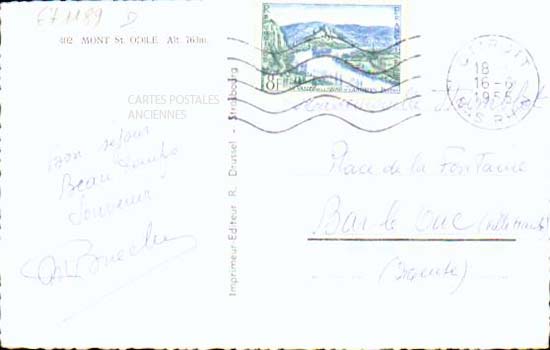 671189 D
402 MONT St. ODILE Alt. 763m.
CARTES POSTALES
ANCIENNES
Bon séjour
Beau temps
Souvenir
Imprimeur-Editeur R. Drussel - Strasbourg
8F
18
16-6
1955
BAS RHIN
Place de la Fontaine
Bar le Duc (ville haute)
(Meuse)